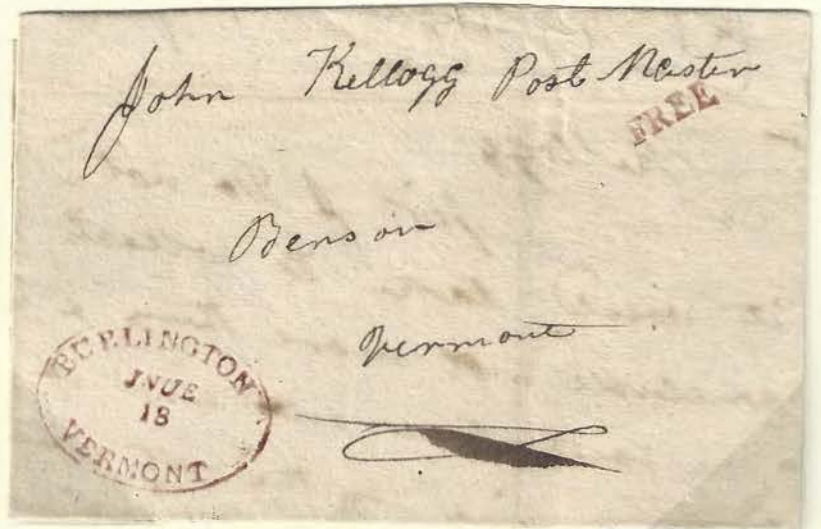 John Kellogg Post Master
FREE
Benson
Vermont
BURLINGTON
JNUE
18
VERMONT